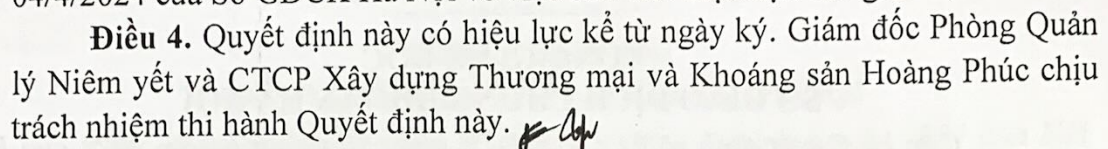 Điều 4. Quyết định này có hiệu lực kể từ ngày ký. Giám đốc Phòng Quản
lý Niêm yết và CTCP Xây dựng Thương mại và Khoáng sản Hoàng Phúc chịu
trách nhiệm thi hành Quyết định này.